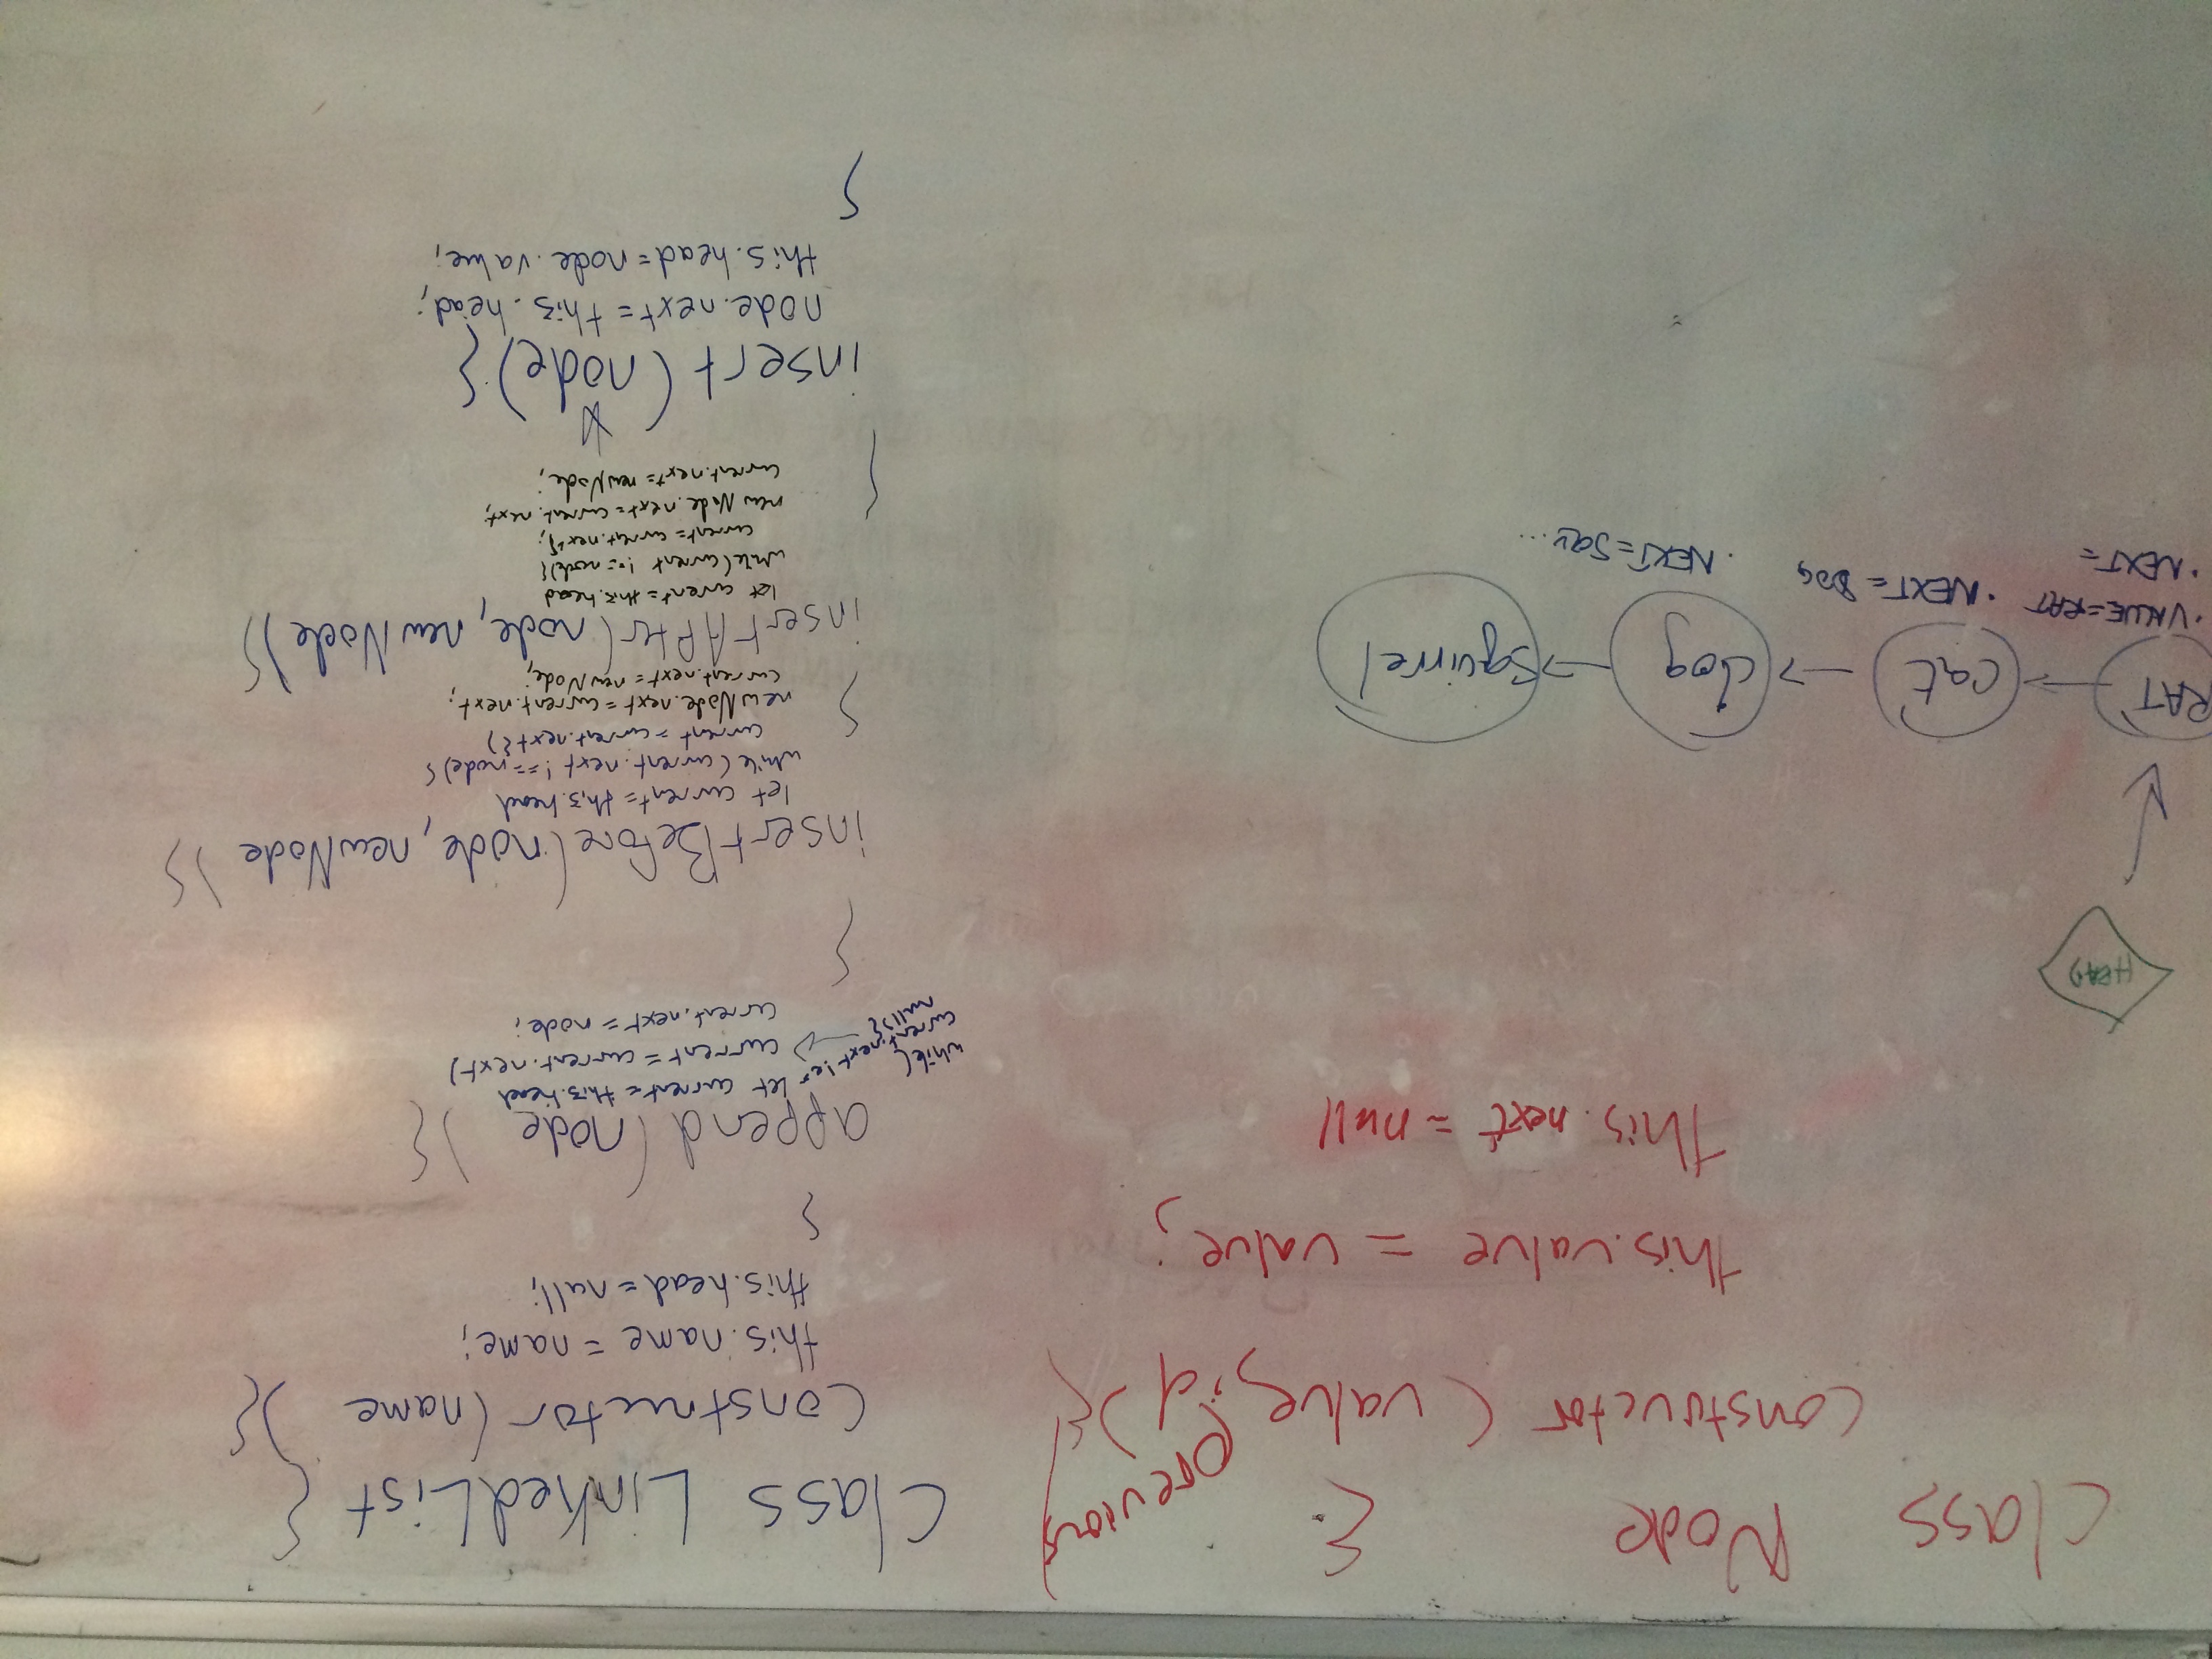 class Node {
previous
constructor (value, id) {
this.value = value;
this.next = null
HEAD
RAT
cat
dog
squirrel
• VALUE=RAT
• NEXT=
• NEXT= DOG
• NEXT=SQU...
Class LinkedList {
Constructor (name ){
this.name = name;
this.head = null;
}
append (node ){
let current = this.head
while(
current.next !==
null){
current = current.next}
current.next = node;
}
insertBefore(node, newNode ){
let current = this.head
while (current.next !== node){
current = current.next}
newNode.next = current.next;
current.next = newNode;
}
insertAfter(node, newNode){
let current = this.head
while(current !== node){
current = current.next};
newNode.next = current.next;
current.next = newNode;
}
insert (node) {
node.next = this.head;
this.head = node.value;
}